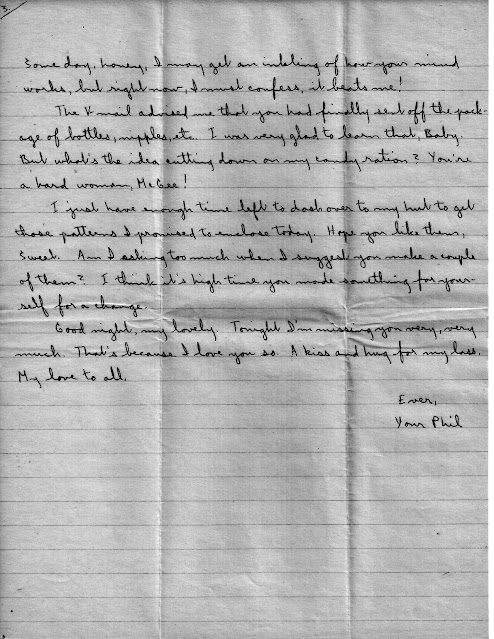 3.
Some day, honey, I may get an inkling of how your mind
works, but right now, I must confess, it beats me!
The V-mail advised me that you had finally sent off the pack-
age of bottles, nipples, etc. I was very glad to learn that, Baby.
But what's the idea cutting down on my candy ration? You're
a hard woman, McGee!
I just have enough time left to dash over to my hut to get
those patterns I promised to enclose today. Hope you like them,
Sweet. Am I asking too much when I suggest you make a couple
of them? I think it's high time you made something for your-
self for a change.
Good night, my lovely. Tonight I'm missing you very, very
much. That's because I love you so. A kiss and hug for my lass.
My love to all.
Ever,
Your Phil